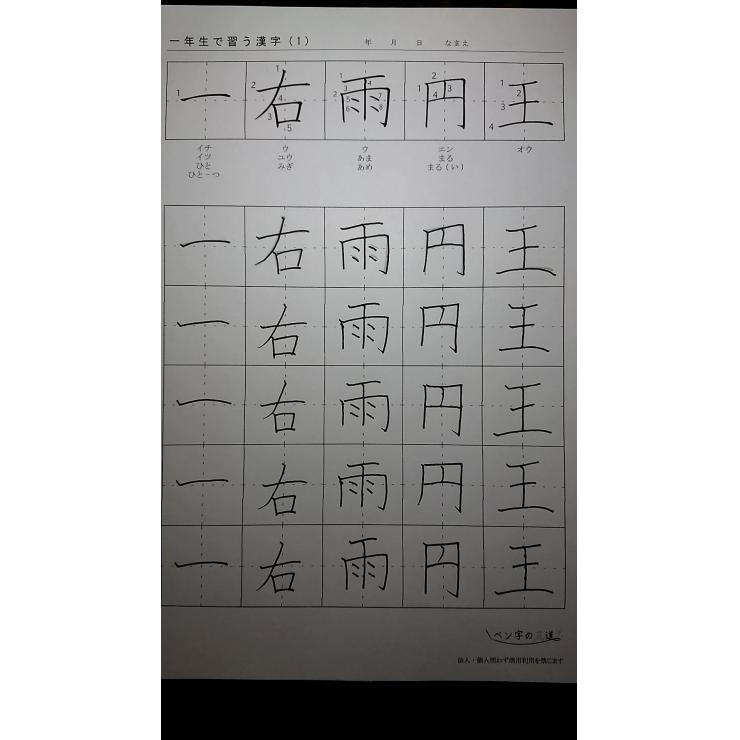 一年生で習う漢字(1) 年 月 日 なまえ
一 右 雨 円 王
1 1 2 3 4 5 1 2 3 4 5 6 7 8 1 2 3 4 1 2 3 4
イチ ウ ウ エン オウ
イツ ユウ あま まる
ひと みぎ あめ まる(い)
ひと-つ
一 右 雨 円 王
一 右 雨 円 王
一 右 雨 円 王
一 右 雨 円 王
一 右 雨 円 王
ペン字の道
法人・個人問わず商用利用を禁じます